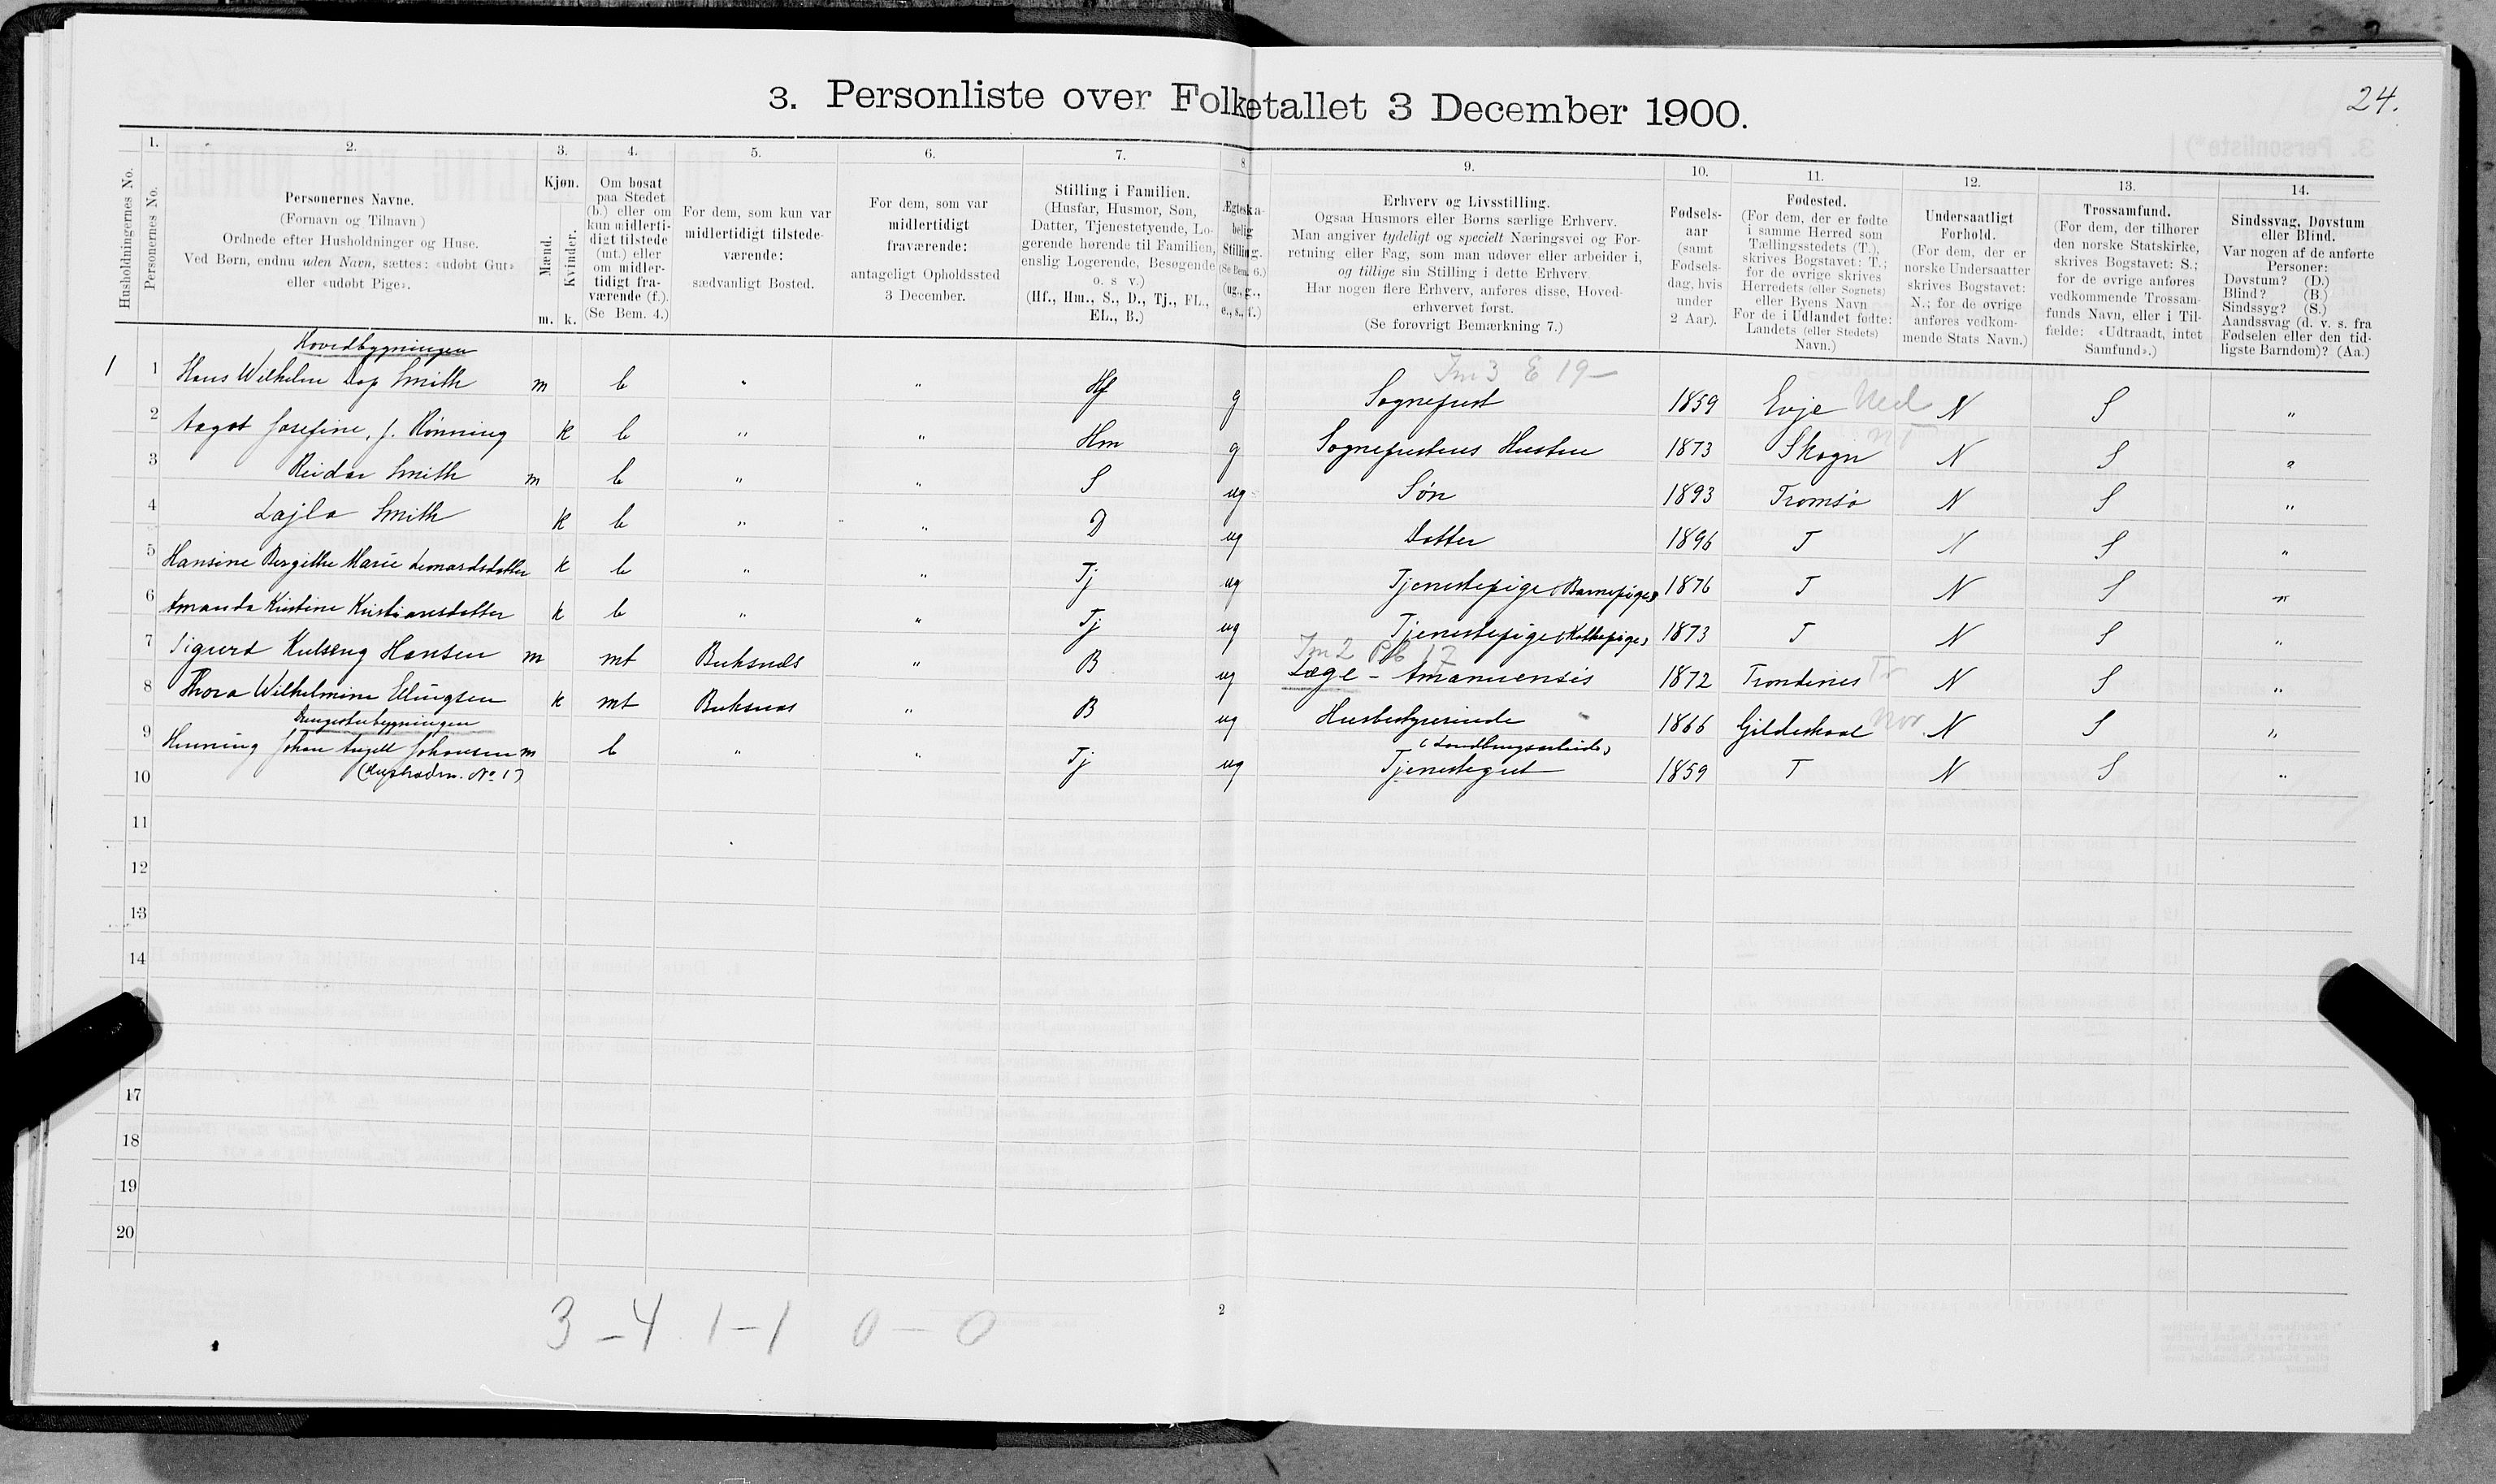 3. Personliste over Folketallet 3 December 1900.
24.
1. 2. 3. 4. 5. 6. 7. 8. 9. 10. 11. 12. 13. 14.
Husholdningernes No.
Personernes No.
Personernes Navne.
(Fornavn og Tilnavn)
Ordnede efter Husholdninger og Huse.
Ved Børn, endnu uden Navn, sættes: «udøbt Gut»
eller «udøbt Pige».
Kjøn.
Mænd.
Kvinder.
m. k.
Om bosat
paa Stedet
(b.) eller om
kun midlerti-
digt tilstede
(mt.) eller
om midler-
tidigt fra-
værende (f.).
(Se Bem. 4.)
For dem, som kun var
midlertidigt tilstede-
værende:
sædvanligt Bosted.
For dem, som var
midlertidigt
fraværende:
antageligt Opholdssted
3 December.
Stilling i Familien.
(Husfar, Husmor, Søn,
Datter, Tjenestetyende, Lo-
gerende hørende til Familien,
enslig Logerende, Besøgende
o. s v.)
(Hf., Hm., S., D., Tj., FL.,
EL., B.)
Ægteska-
belig
Stilling.
(Se Bem. 6.)
(ug., g.,
e., s., f.)
Erhverv og Livsstilling.
Ogsaa Husmors eller Børns særlige Erhverv.
Man angiver tydeligt og specielt Næringsvei og For-
retning eller Fag, som man udøver eller arbeider i,
og tillige sin Stilling i dette Erhverv.
Har nogen flere Erhverv, anføres disse, Hoved-
erhvervet først.
(Se forøvrigt Bemærkning 7.)
Fødsels-
aar
(samt
Fødsels-
dag, hvis
under
2 Aar).
Fødested.
(For dem, der er fødte
i samme Herred som
Tællingsstedets (T.),
skrives Bogstavet: T.;
for de øvrige skrives
Herredets (eller Sognets)
eller Byens Navn
For de i Udlandet fødte:
Landets (eller Stedets)
Navn.)
Undersaatligt
Forhold.
(For dem, der er
norske Undersaatter
skrives Bogstavet:
N.; for de øvrige
anføres vedkom-
mende Stats Navn.)
Trossamfund.
(For dem, der tilhører
den norske Statskirke,
skrives Bogstavet: S.;
for de øvrige anføres
vedkommende Trossam-
funds Navn, eller i Til-
fælde: «Udtraadt, intet
Samfund».)
Sindssvag, Døvstum
eller Blind.
Var nogen af de anførte
Personer:
Døvstum? (D.)
Blind? (B.)
Sindssyg? (S.)
Aandssvag (d. v. s. fra
Fødselen eller den tid-
ligste Barndom)? (Aa.)
Hovedbygningen
Im 3 E 19 —
1 1 Hans Wilhelm Dop Smith m b " " Hf g Sogneprest 1859 Evje Ned N S "
2 Aagot Josefine, f. Rønning k b " " Hm g Sogneprestens Hustru 1873 Skogn NT N S "
3 Reidar Smith m b " " S ug Søn 1893 Tromsø N S "
4 Lajla Smith k b " " D ug Datter 1896 T N S "
5 Hansine Bergitte Marie Leonardsdatter k b " " Tj ug Tjenestepige (Barnepige) 1876 T N S "
6 Amanda Kristine Kristiansdatter k b " " Tj ug Tjenestepige (Kokkepige) 1873 T N S "
Im 2 Pb 17
7 Sigurd Kulseng Hansen m mt Buksnæs " B ug Læge - Amanuensis 1872 Trondenes Tr N S "
8 Thora Wilhelmine Ellingsen k mt Buksnæs " B ug Husbestyrerinde 1866 Gildeskaal Nor. N S "
9 Henning Johan Angell Johansen m b " " Tj ug (Landbrugsarbeide) Tjenestegut 1859 T N S "
10 (Husholdn. No 1)
11
12
13
14
17
18
19
20
3 - 4 1 - 1 0 - 0
2